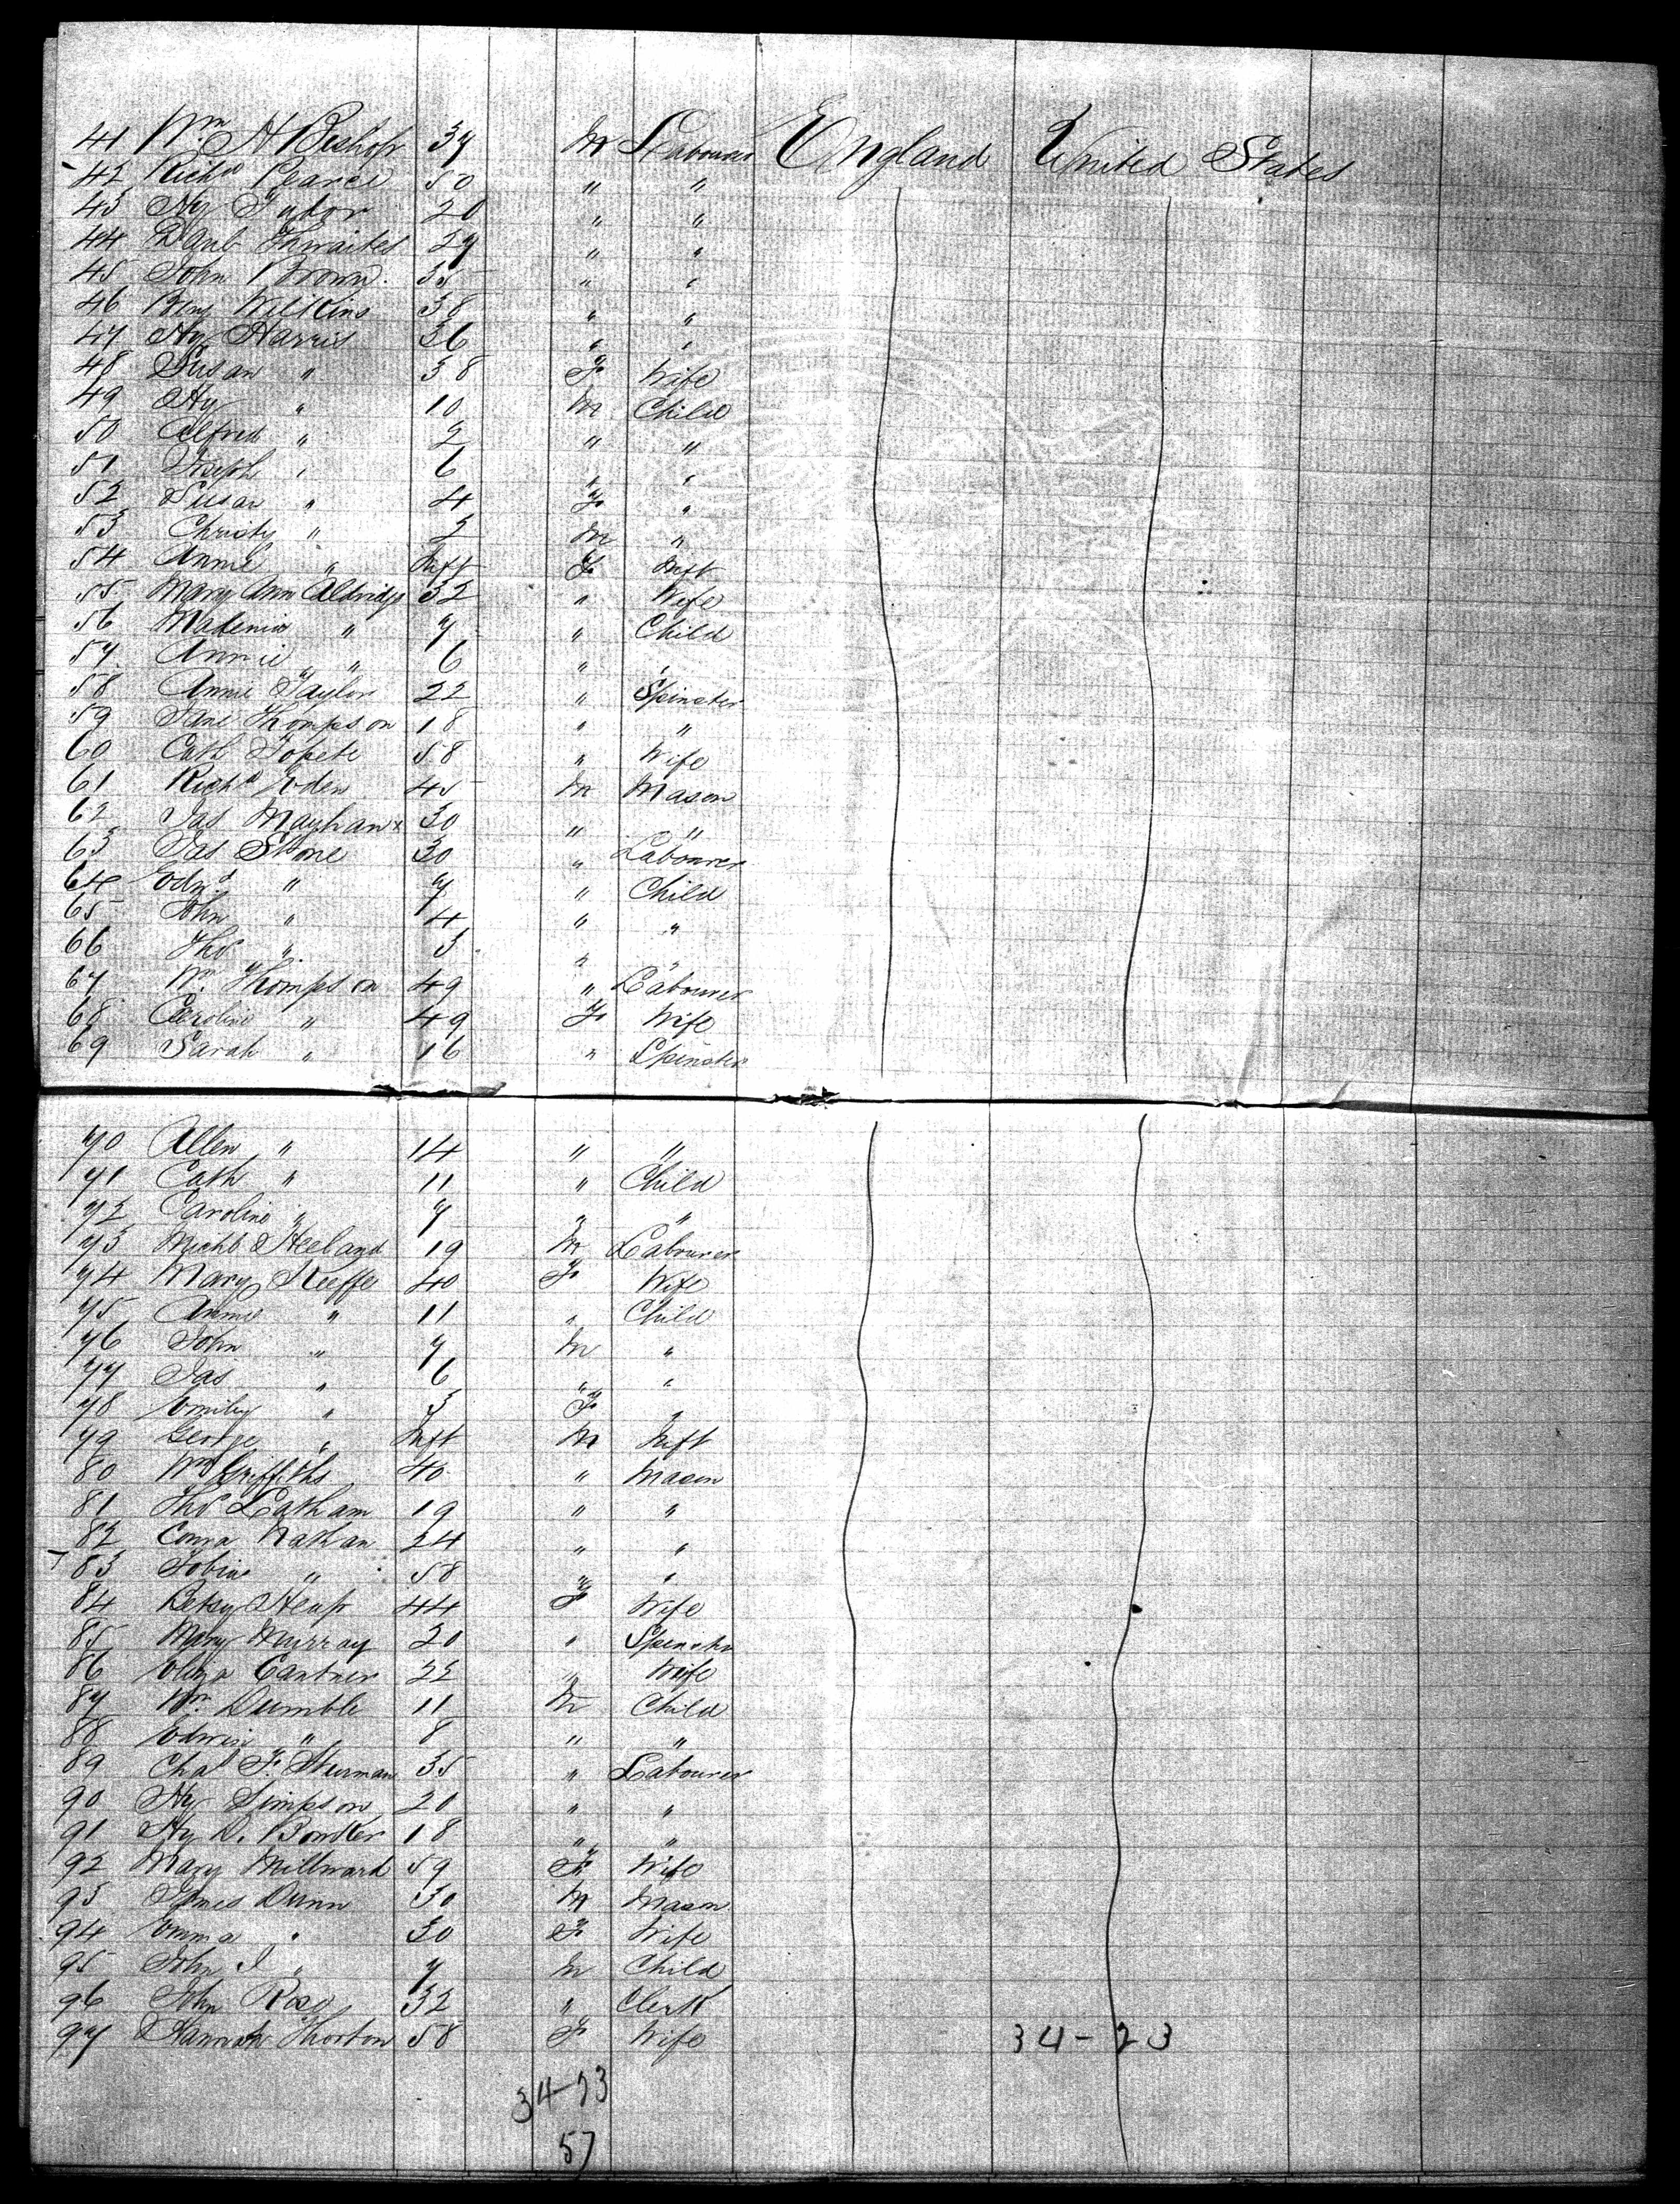 41 Wm H Bishop 37 M Labourer England United States
42 Richd Pearce 50 " "
43 Hy Tudor 20 " "
44 Danl Thwaites 29 " "
45 John Brown 35 " "
46 Benj Wilkins 38 " "
47 Hy Harris 36 " "
48 Susan " 38 F Wife
49 Hy " 10 M Child
50 Alfred " 7 " "
51 Joseph " 6 " "
52 Susan " 4 F "
53 Christy " 2 M "
54 Annie " Inft F Inft
55 Mary Ann Aldridge 32 " Wife
56 " 7 " Child
57 Annie " 6 " "
58 Annie Taylor 22 " Spinster
59 Jane Thompson 18 " "
60 Cath 58 " Wife
61 Richd Eden 45 M Mason
62 Jas Mayhan x 30 " "
63 Jas Stone 30 " Labourer
64 Edmd " 7 " Child
65 John " 4 " "
66 Thos " 3 " "
67 Wm Thompson 49 " Labourer
68 Caroline " 49 F Wife
69 Sarah " 16 " Spinster
70 Allen " 14 " "
71 Cath " 11 " Child
72 Caroline " 7 " "
73 Michl Heeland 19 M Labourer
74 Mary Keeffe 40 F Wife
75 Annie " 11 " Child
76 John " 7 M "
77 Jas " 6 " "
78 Emily " 3 F "
79 George " Inft M Inft
80 Wm Griffiths 40 " Mason
81 Thos Latham 19 " "
82 Nathan 24 " "
83 Tobias " 58 " "
84 Betsy Heap 44 F Wife
85 Mary Murray 20 " Spinster
86 Eliza Cantner 22 " Wife
87 Wm Dumble 11 M Child
88 Edwin " 8 " "
89 Chas F. Sturman 35 " Labourer
90 Hy Simpson 20 " "
91 Hy D. Bowker 18 " "
92 Mary Millward 59 F Wife
93 James Dunn 30 M Mason
94 Emma " 30 F Wife
95 John J " 7 M Child
96 John Rose 32 " Clerk
97 Hannah Thorton 58 F Wife
34-23
34-23
57